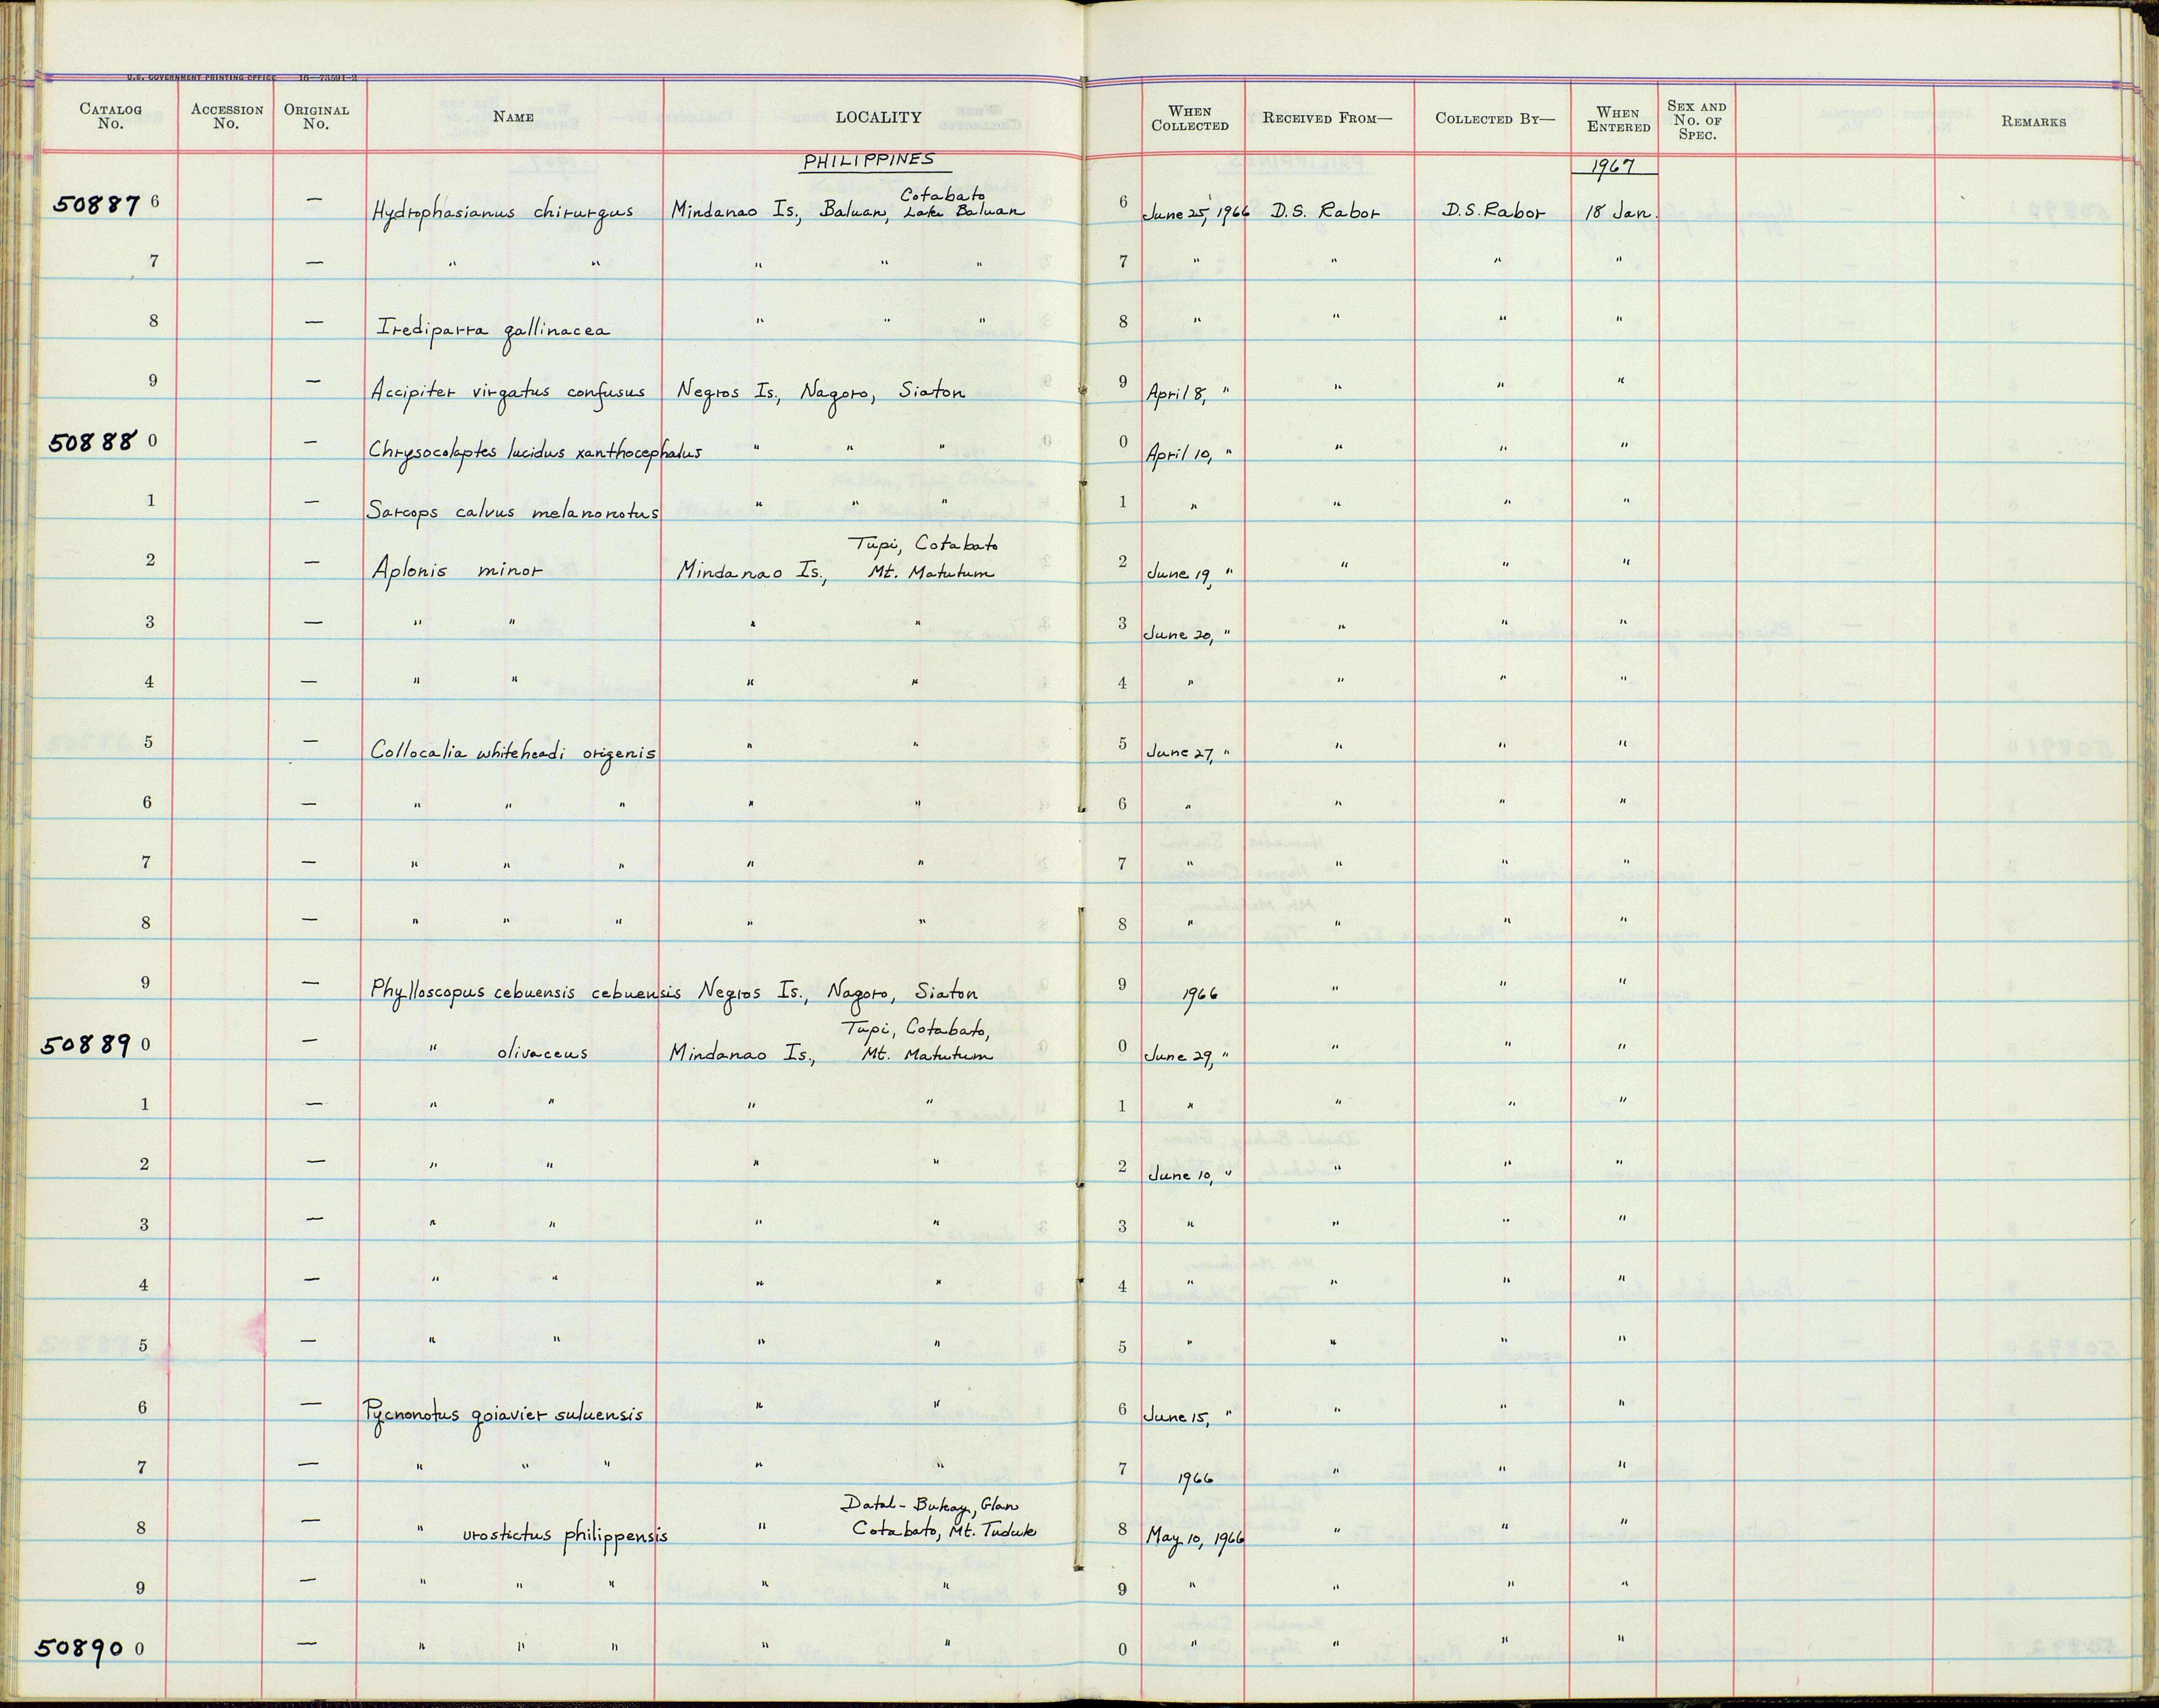 U.S. GOVERNMENT PRINTING OFFICE 16—73591-2
CATALOG No. ACCESSION No. ORIGINAL No. NAME LOCALITY WHEN COLLECTED RECEIVED FROM— COLLECTED BY— WHEN ENTERED SEX AND No. OF SPEC. REMARKS
PHILIPPINES 1967
Cotabato
50887 6 — Hydrophasianus chirurgus Mindanao Is., Baluan, Lake Baluan 6 June 25, 1966 D.S. Rabor D.S. Rabor 18 Jan.
7 — " " " " " 7 " " " "
8 — Irediparra gallinacea " " " 8 " " " "
9 — Accipiter virgatus confusus Negros Is., Nagoro, Siaton 9 April 8, " " " "
50888 0 — Chrysocolaptes lucidus xanthocephalus " " " 0 April 10, " " " "
1 — Sarcops calvus melanonotus " " " 1 " " " "
Tupi, Cotabato
2 — Aplonis minor Mindanao Is., Mt. Matutum 2 June 19, " " " "
3 — " " " " 3 June 20, " " " "
4 — " " " " 4 " " " "
5 — Collocalia whiteheadi origenis " " 5 June 27, " " " "
6 — " " " " " 6 " " " "
7 — " " " " " 7 " " " "
8 — " " " " " 8 " " " "
9 — Phylloscopus cebuensis cebuensis Negros Is., Nagoro, Siaton 9 1966 " " "
Tupi, Cotabato,
50889 0 — " olivaceus Mindanao Is., Mt. Matutum 0 June 29, " " " "
1 — " " " " 1 " " " "
2 — " " " " 2 June 10, " " " "
3 — " " " " 3 " " " "
4 — " " " " 4 " " " "
5 — " " " " 5 " " " "
6 — Pycnonotus goiavier suluensis " " 6 June 15, " " " "
7 — " " " " " 7 1966 " " "
Datal-Bukay, Glan
8 — " urostictus philippensis " Cotabato, Mt. Tuduk 8 May 10, 1966 " " "
9 — " " " " " 9 " " " "
50890 0 — " " " " " 0 " " " "